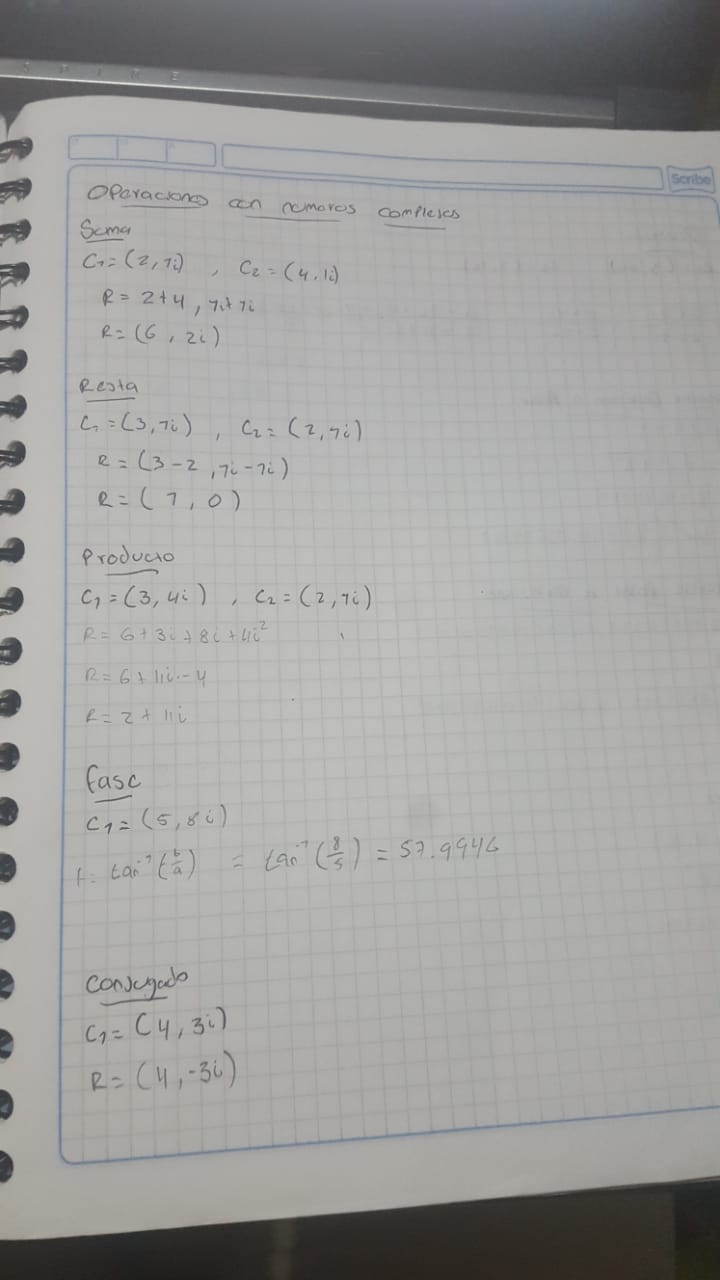 SPINE
Scribe
Operaciones con numeros complejos
Suma
C1=(2,1i) , C2=(4,1i)
R=2+4, 1i+1i
R=(6, 2i)
Resta
C1=(3,1i) , C2=(2,1i)
R=(3-2,1i-1i)
R=(1,0)
Producto
C1=(3,4i) , C2=(2,1i)
R=6+3i+8i+4i²
R=6+11i-4
R=2+11i
fase
C1=(5,8i)
f= tan⁻¹(b/a) = tan⁻¹(8/5) = 57.9946
Conjugado
C1=(4,3i)
R=(4,-3i)